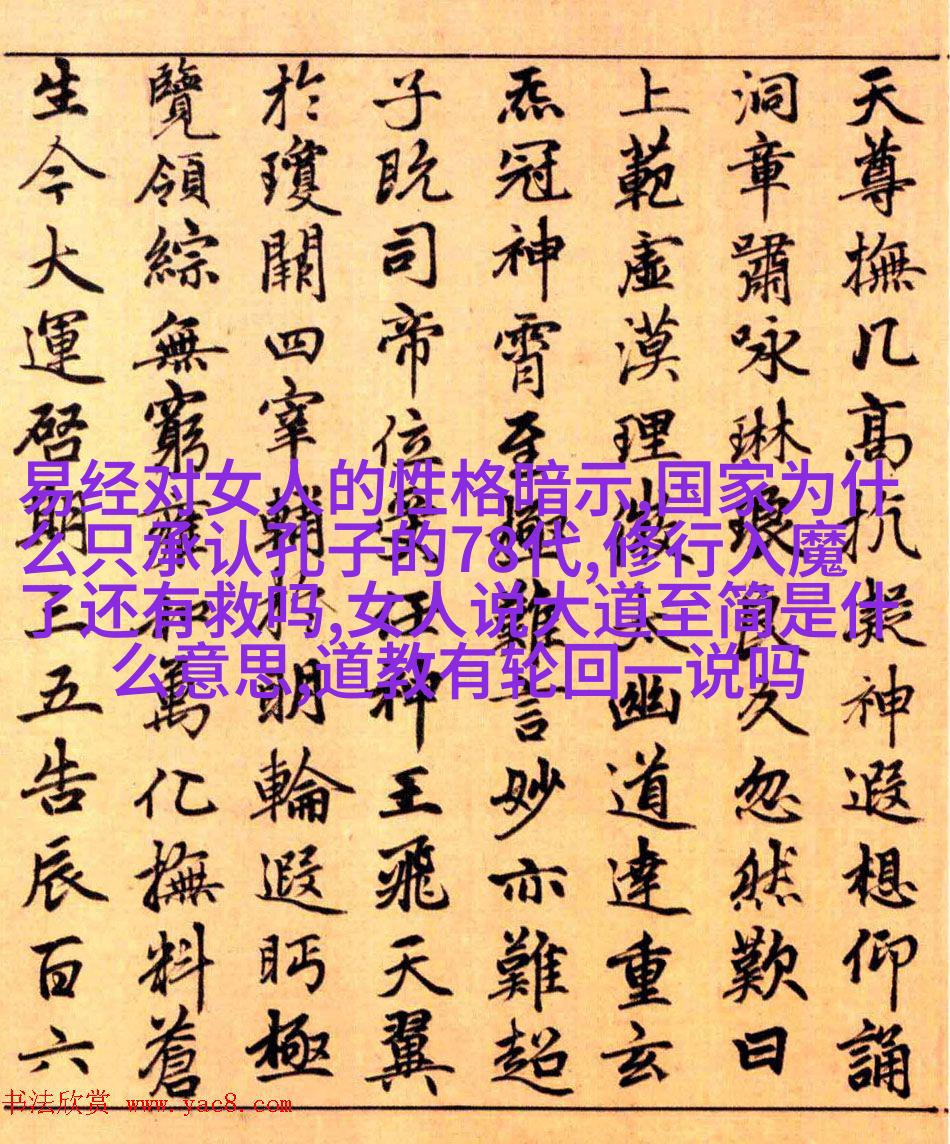 天尊撫几高抗凝神遐想仰誦
洞章嘯咏琳琅良久忽然歎曰
上範虛漠理微太幽道達重玄
炁冠神霄至極難言妙亦難超
子既司帝位任神王飛天翼
於瓊闕四宰輔於明輪遐眄極
覽領綜無窮和萬化撫料蒼
生今大運啓期三五告辰百六
易经对女人的性格暗示,国家为什
么只承认孔子的78代,修行入魔
了还有救吗,女人说大道至简是什
么意思,道教有轮回一说吗
书法欣赏 www.yac8.com